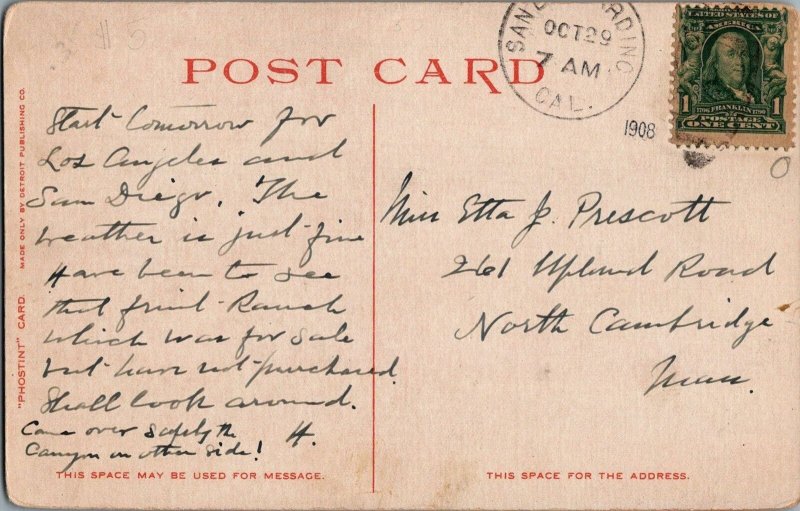 #5
POST CARD
SAN BERNARDINO
OCT 29
7 AM
CAL.
1908
UNITED STATES OF
AMERICA
1 1
1706 FRANKLIN 1790
POSTAGE
ONE CENT
Start tomorrow for
Los Angeles and
San Diego. The
weather is just fine
Have been to see
that fruit Ranch
which was for sale
but have not purchased.
Shall look around.
Came over safely the H.
Canyon on other side!
Miss Etta J. Prescott
261 Upland Road
North Cambridge
Mass.
"PHOSTINT" CARD. MADE ONLY BY DETROIT PUBLISHING CO.
THIS SPACE MAY BE USED FOR MESSAGE.
THIS SPACE FOR THE ADDRESS.
0